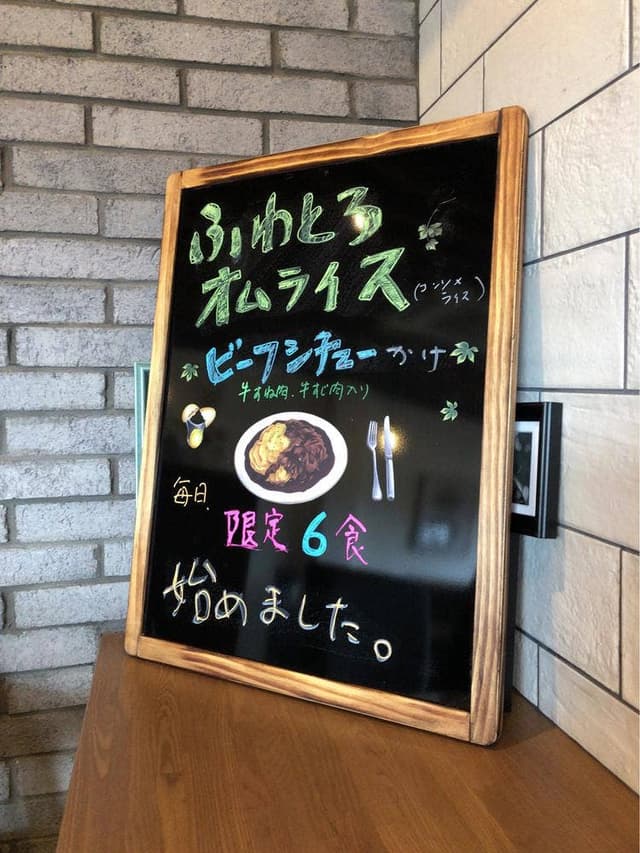 ふわとろ
オムライス
(コンソメ
ライス)
ビーフシチューかけ
牛すね肉、牛すじ肉入り
毎日
限定6食
始めました。